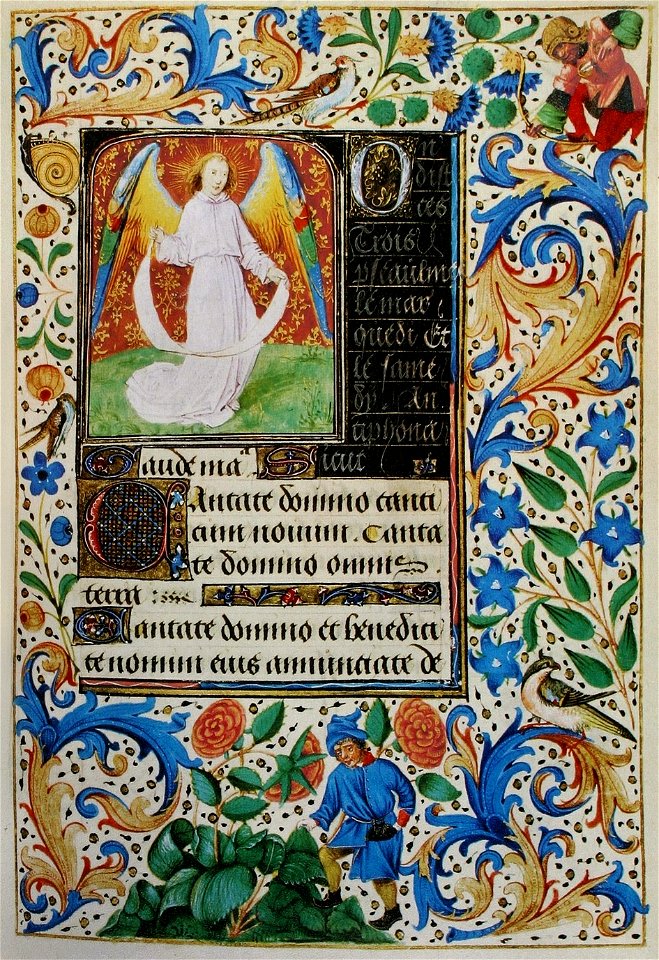 On
dist
ces
Trois
pseaulmes
le mar
quedi Et
le same
dy. An
tiphona
Gaude ma. Sicut
CAntate domino canti
cum nouum. Canta
te domino omnis
terra
Cantate domino et benedici
te nomini eius annunciate de